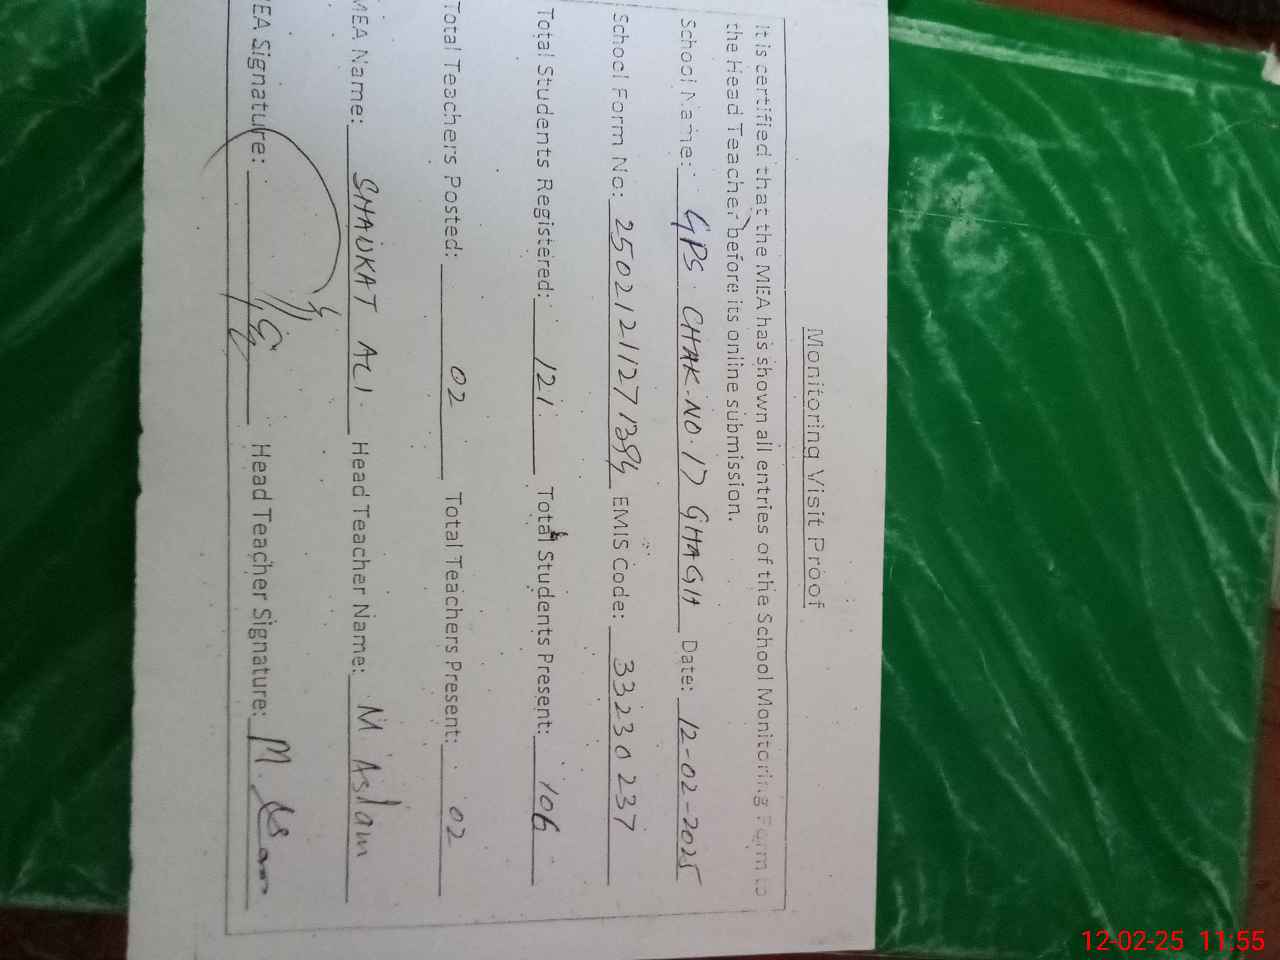 Monitoring Visit Proof
It is certified that the MEA has shown all entries of the School Monitoring Form to
the Head Teacher before its online submission.
School Name: GPS. CHAK.NO.17 GHAGH Date: 12-02-2025
School Form No: 25021211271394 EMIS Code: 33230237
Total Students Registered: 121 Total Students Present: 106
Total Teachers Posted: 02 Total Teachers Present: 02
MEA Name: SHAUKAT ALI. Head Teacher Name: M Aslam
MEA Signature: Head Teacher Signature: M.
12-02-25 11:55